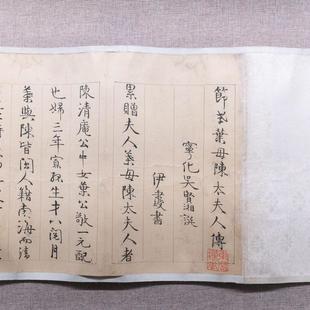 節孝葉母陳太夫人傳
寧化吳賢湘譔
伊秉綬書
累贈夫人葉母陳太夫人者
陳清庵公中女葉公敬一元配
也婦三年寡孫生才八閱月
葉與陳皆閩人籍南海而